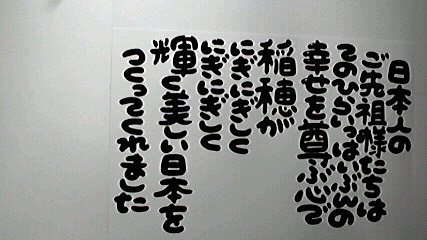 日本人の
ご先祖様たちは
てのひらいっぱいぶんの
幸せを尊ぶ心で
稲穂が
にぎにぎしく
にぎにぎしく
輝く美しい日本を
つくってくれました